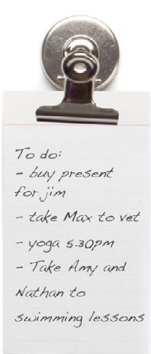 To do:
- buy present
for jim
- take Max to vet
- yoga 5.30pm
- Take Amy and
Nathan to
swimming lessons